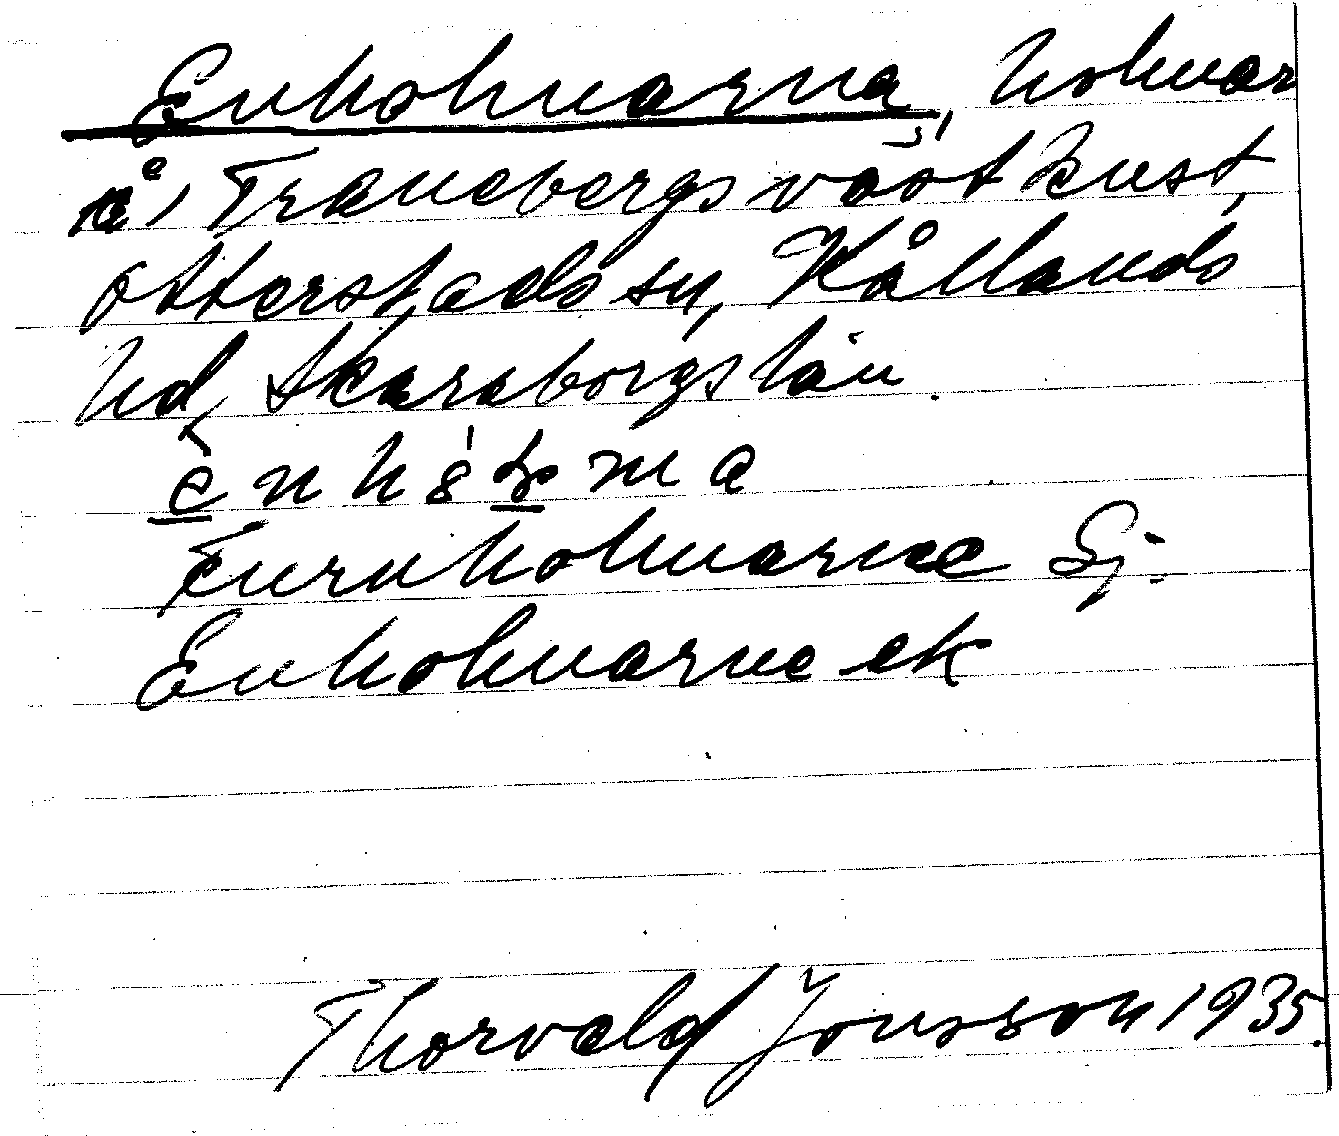 Enholmarna, holmar
nå, Tranebergs västkust,
Otterstads sn, Kållands
hd, Skaraborgs län.
Furuholmarne Sj.
Enholmarne ek
Thorvald Jonsson 1935.